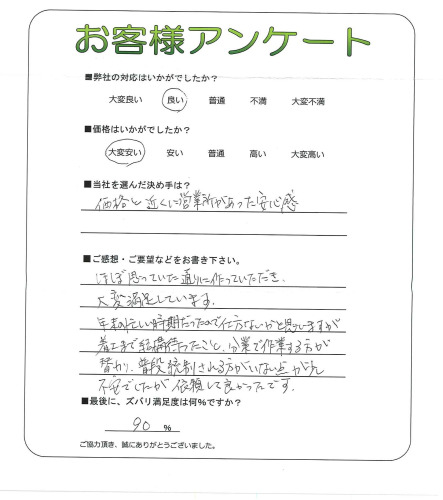 お客様アンケート
■弊社の対応はいかがでしたか？
大変良い 良い 普通 不満 大変不満
■価格はいかがでしたか？
大変安い 安い 普通 高い 大変高い
■当社を選んだ決め手は？
価格と近くに営業所があった安心感
■ご感想・ご要望などをお書き下さい。
ほぼ思っていた通りに作っていただき、
大変満足しています。
年末の忙しい時期だったので仕方ないかと思いますが
着工まで結構待ったこと、分業で作業する方が
替わり、普段統制される方がいない点が
不安でしたが依頼して良かったです。
■最後に、ズバリ満足度は何％ですか？
90 ％
ご協力頂き、誠にありがとうございました。